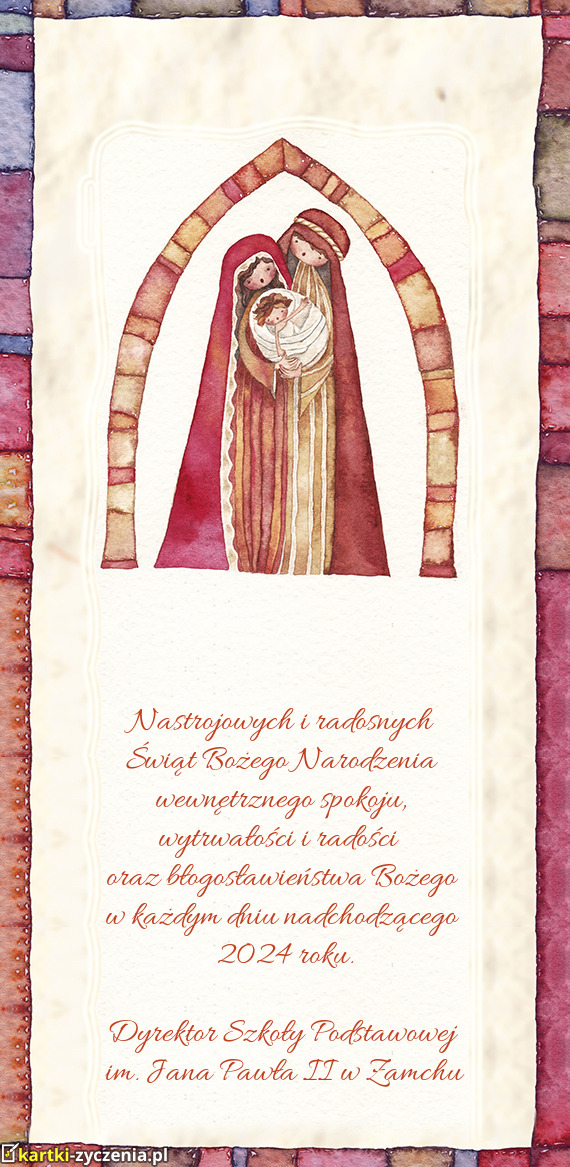 Nastrojowych i radosnych
Świąt Bożego Narodzenia
wewnętrznego spokoju,
wytrwałości i radości
oraz błogosławieństwa Bożego
w każdym dniu nadchodzącego
2024 roku.
Dyrektor Szkoły Podstawowej
im. Jana Pawła II w Zamchu
kartki-zyczenia.pl